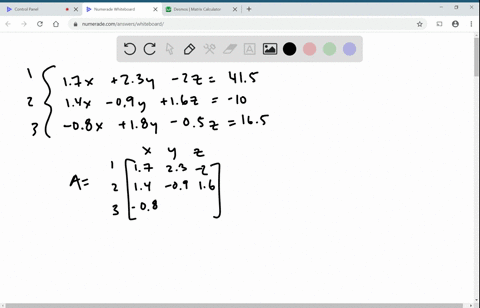 Control Panel
Numerade Whiteboard
Desmos | Matrix Calculator
numerade.com/answers/whiteboard/
1 1.7x +2.3y -2z = 41.5
2 1.4x -0.9y +1.6z = -10
3 -0.8x +1.8y -0.5z = 16.5
x y z
1 1.7 2.3 -2
A= 2 1.4 -0.9 1.6
3 -0.8